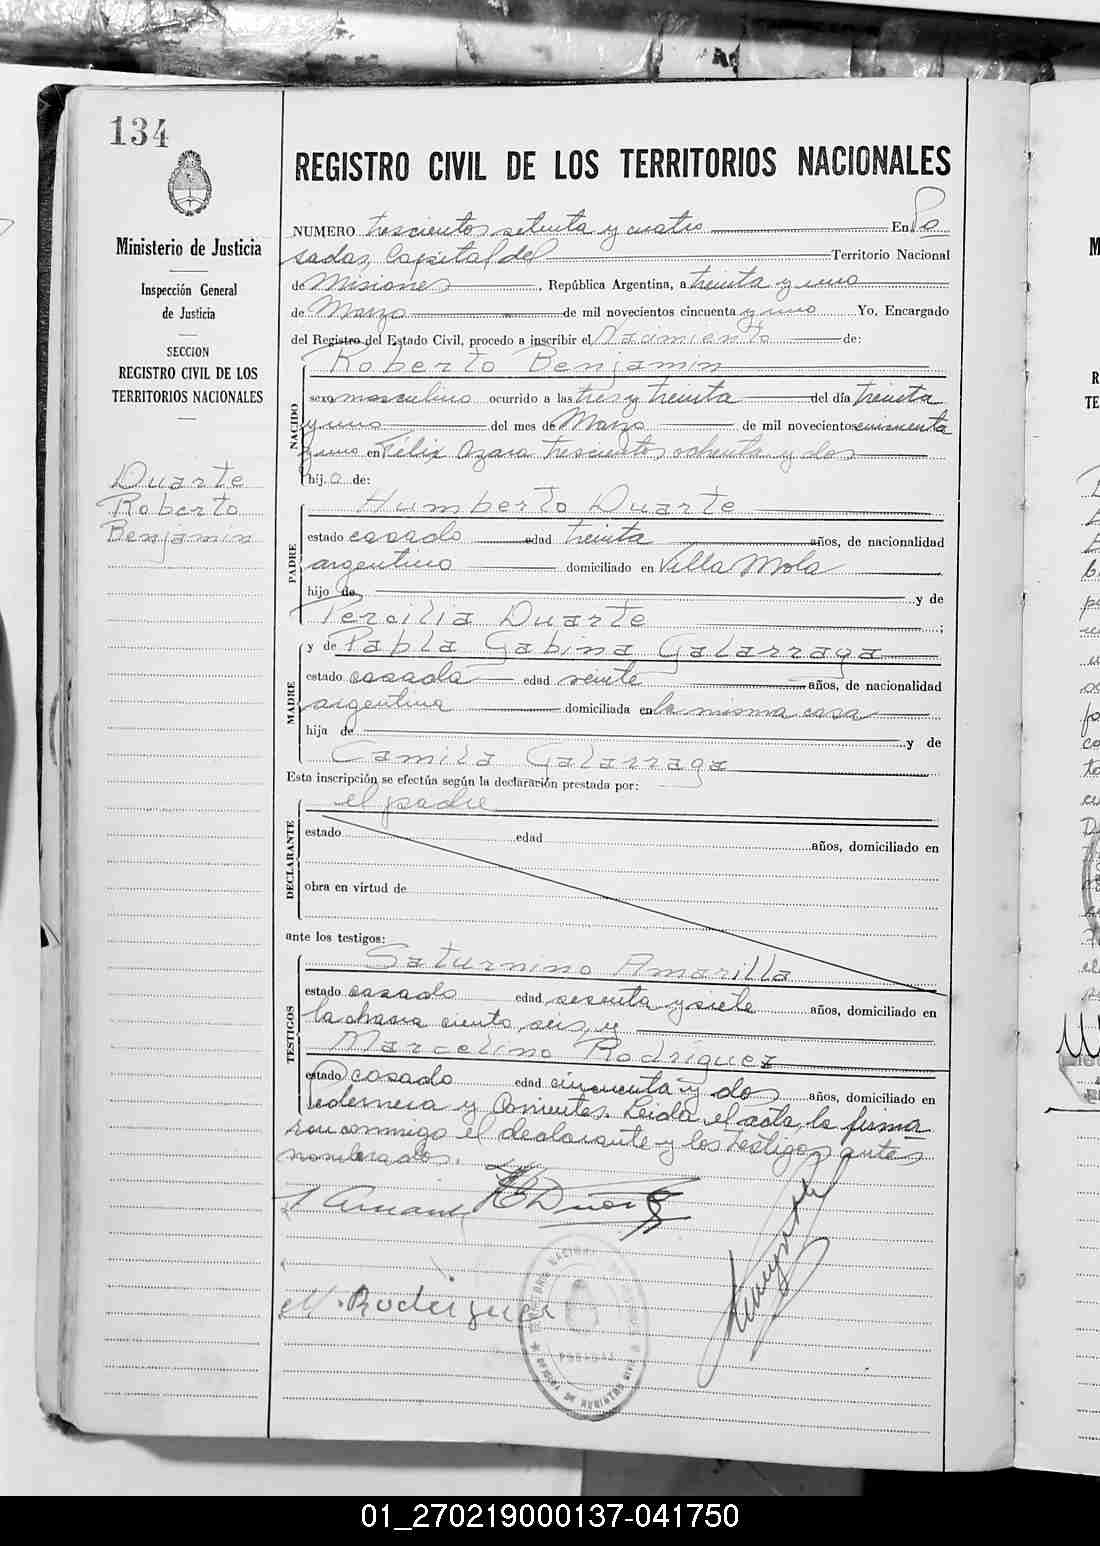 134
Ministerio de Justicia
Inspección General
de Justicia
SECCION
REGISTRO CIVIL DE LOS
TERRITORIOS NACIONALES
Duarte
Roberto
Benjamin
REGISTRO CIVIL DE LOS TERRITORIOS NACIONALES
NUMERO trescientos setenta y cuatro En Po
sadas, Capital del Territorio Nacional
de Misiones, República Argentina, a treinta y uno
de Marzo de mil novecientos cincuenta y uno Yo, Encargado
del Registro del Estado Civil, procedo a inscribir el Nacimiento de:
NACIDO
Roberto Benjamin
sexo masculino ocurrido a las tres y treinta del día treinta
y uno del mes de Marzo de mil novecientos cincuenta
y uno en Félix Azara trescientos ochenta y dos
hijo de:
PADRE
Humberto Duarte
estado casado edad treinta años, de nacionalidad
argentino domiciliado en Villa Mola
hijo de y de
Percilia Duarte;
MADRE
y de Pabla Gabina Galarraga
estado casada edad veinte años, de nacionalidad
argentina domiciliada en la misma casa
hija de y de
Camila Galarraga
Esta inscripción se efectúa según la declaración prestada por:
DECLARANTE
el padre
estado edad años, domiciliado en
obra en virtud de
ante los testigos:
TESTIGOS
Saturnino Amarilla
estado casado edad sesenta y siete años, domiciliado en
la chacra ciento seis, y
Marcelino Rodriguez
estado casado edad cincuenta y dos años, domiciliado en
Pedernera y Corrientes. Leida el acta, la firma
ron conmigo el declarante y los testigos antes
nombrados.
H Duarte
M. Rodriguez
REGISTRO NACIONAL
POSADAS
OFICINA DE REGISTRO CIVIL
01_270219000137-041750